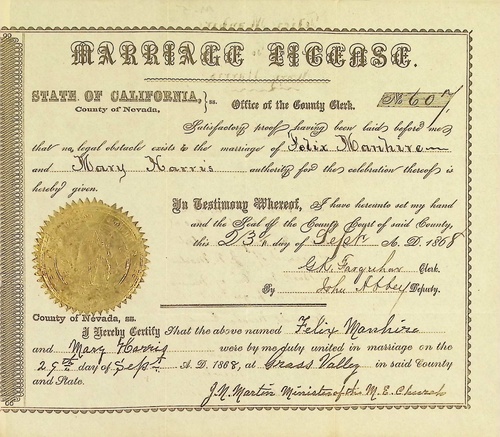 MARRIAGE LICENSE.
STATE OF CALIFORNIA, } ss.
County of Nevada,
Office of the County Clerk.
No 607
Satisfactory proof having been laid before me
that no legal obstacle exists to the marriage of Felix Manhire
and Mary Harris authority for the celebration thereof is
hereby given.
In Testimony Whereof, I have hereunto set my hand
and the Seal of the County Court of said County,
this 23 day of Sept A. D. 1868
G.K. Farquhar Clerk.
By John Abbey Deputy.
County of Nevada, ss.
I Hereby Certify That the above named Felix Manhire
and Mary Harris were by me duly united in marriage on the
29th day of Sept A. D. 1868, at Grass Valley in said County
and State.
J.N. Martin Minister of the M. E. Church